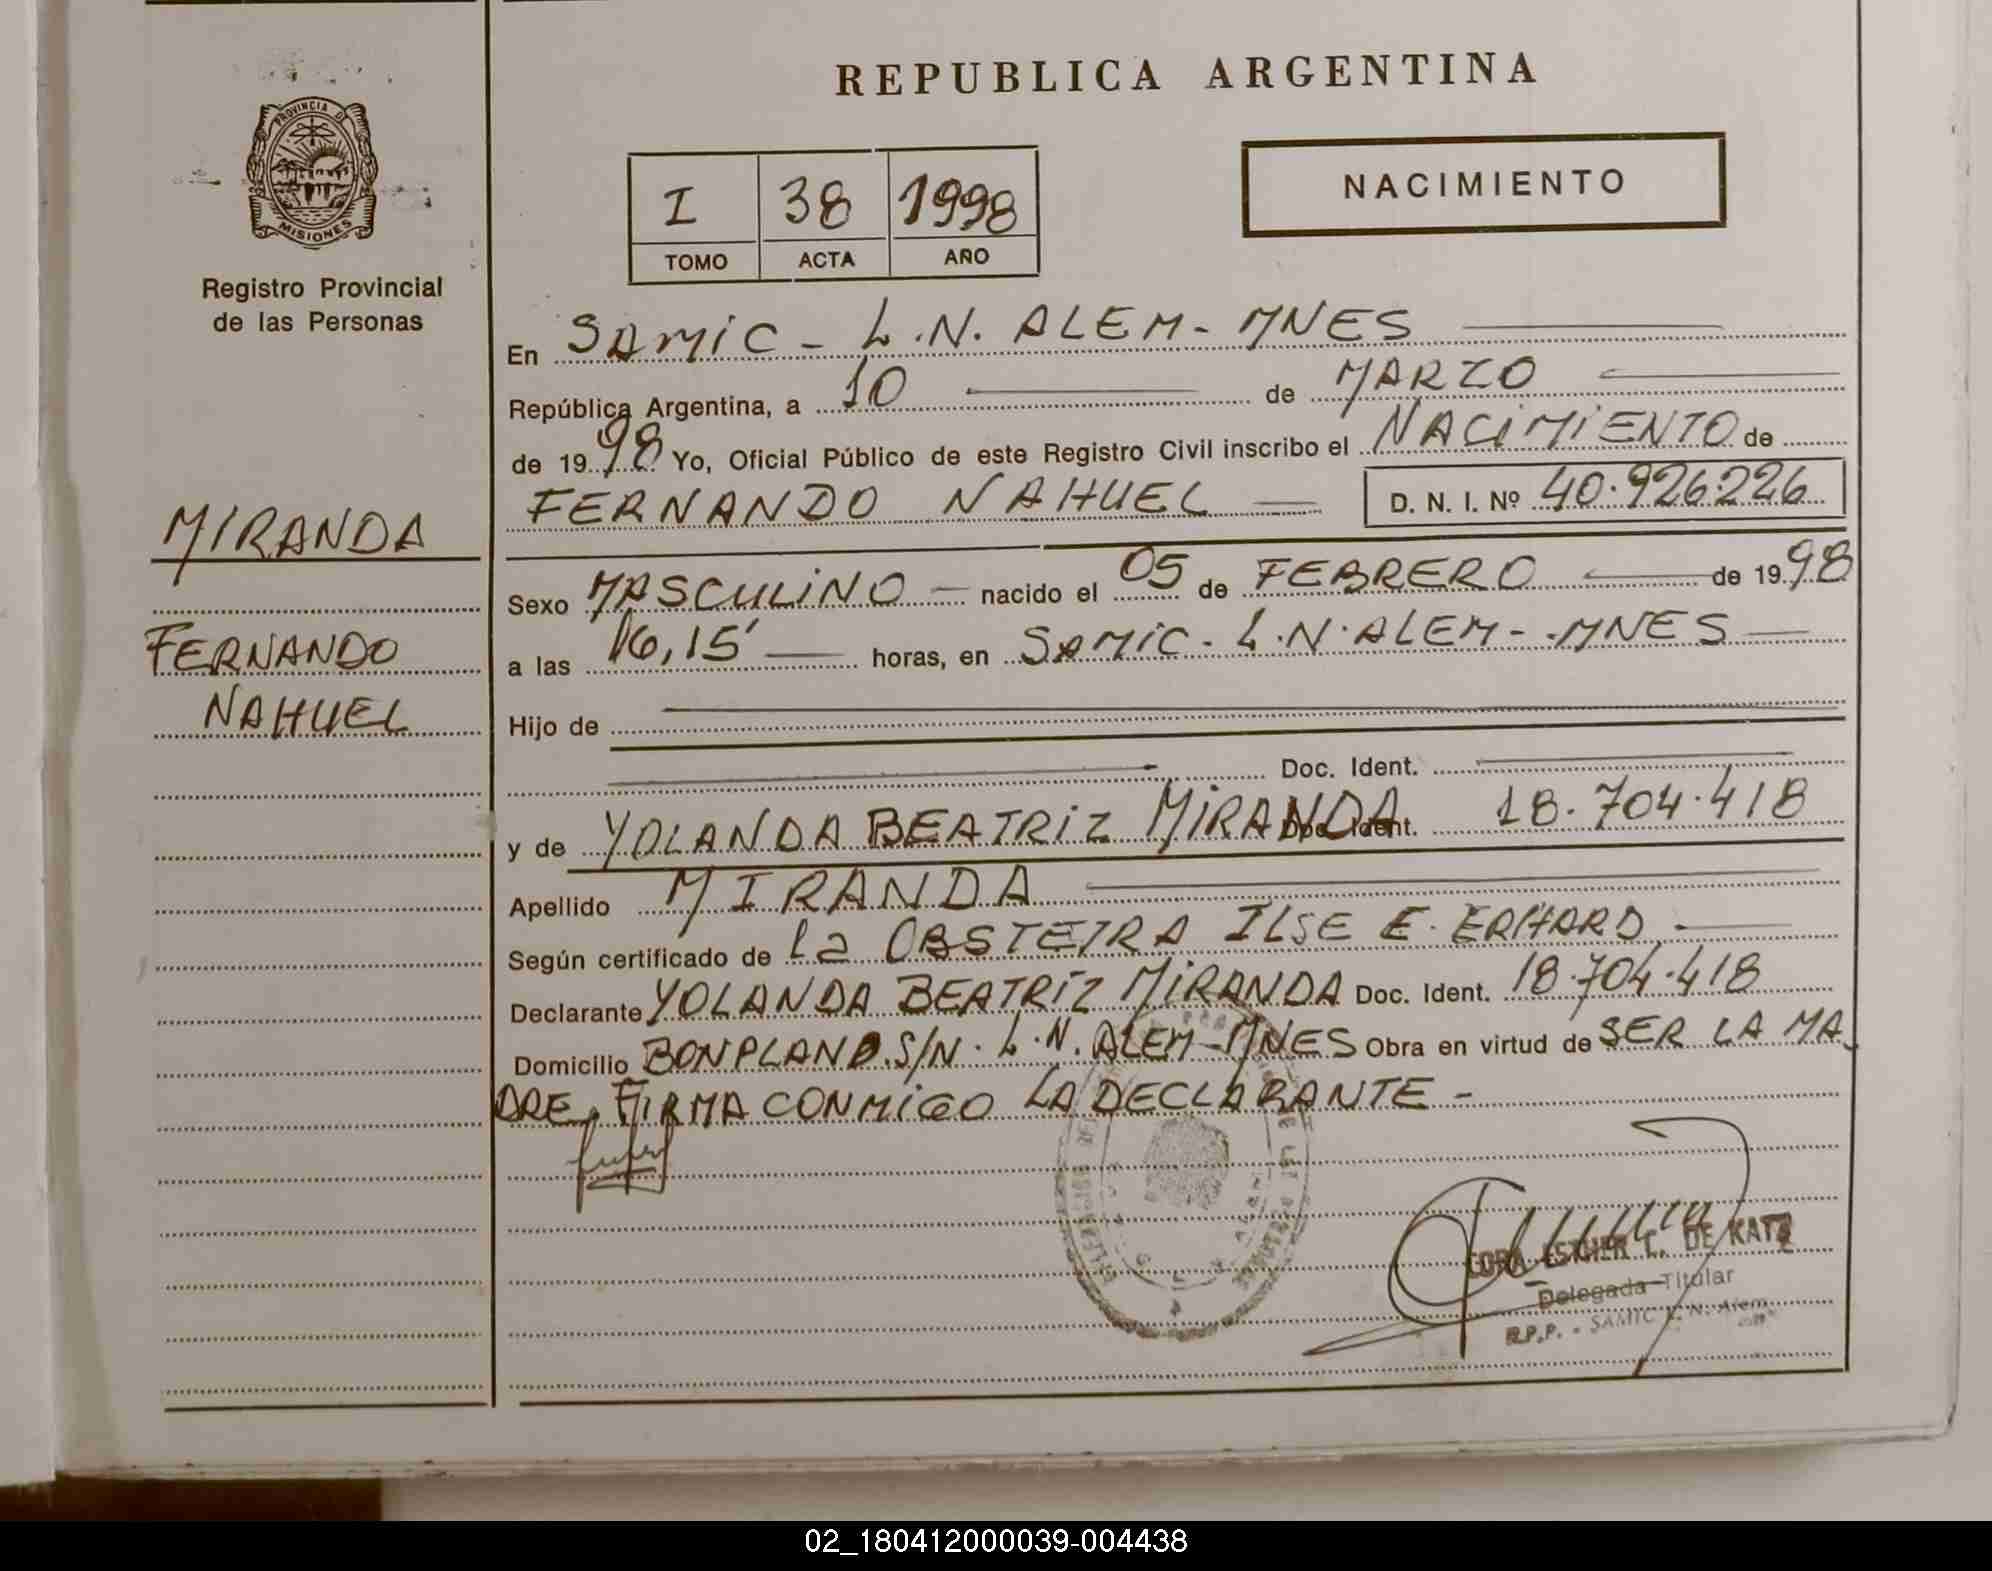 REPUBLICA ARGENTINA
PROVINCIA D
MISIONES
Registro Provincial
de las Personas
I 38 1998
TOMO ACTA AÑO
NACIMIENTO
MIRANDA
FERNANDO
NAHUEL
En SAMIC - L.N. ALEM - MNES
República Argentina, a 10 de MARZO
de 1998 Yo, Oficial Público de este Registro Civil inscribo el NACIMIENTO de
FERNANDO NAHUEL D. N. I. Nº 40.926.226
Sexo MASCULINO nacido el 05 de FEBRERO de 1998
a las 16,15' horas, en SAMIC - L.N. ALEM - MNES
Hijo de
Doc. Ident.
y de YOLANDA BEATRIZ MIRANDA Doc. Ident. 18.704.418
Apellido MIRANDA
Según certificado de la OBSTETRA ILSE E. ERHARD
Declarante YOLANDA BEATRIZ MIRANDA Doc. Ident. 18.704.418
Domicilio BONPLAND S/N. L.N. ALEM - MNES Obra en virtud de SER LA MA
DRE, FIRMA CONMIGO LA DECLARANTE -
ESTHER DE KATZ
Delegada Titular
R.P.P. - SAMIC L. N. Alem
02_180412000039-004438